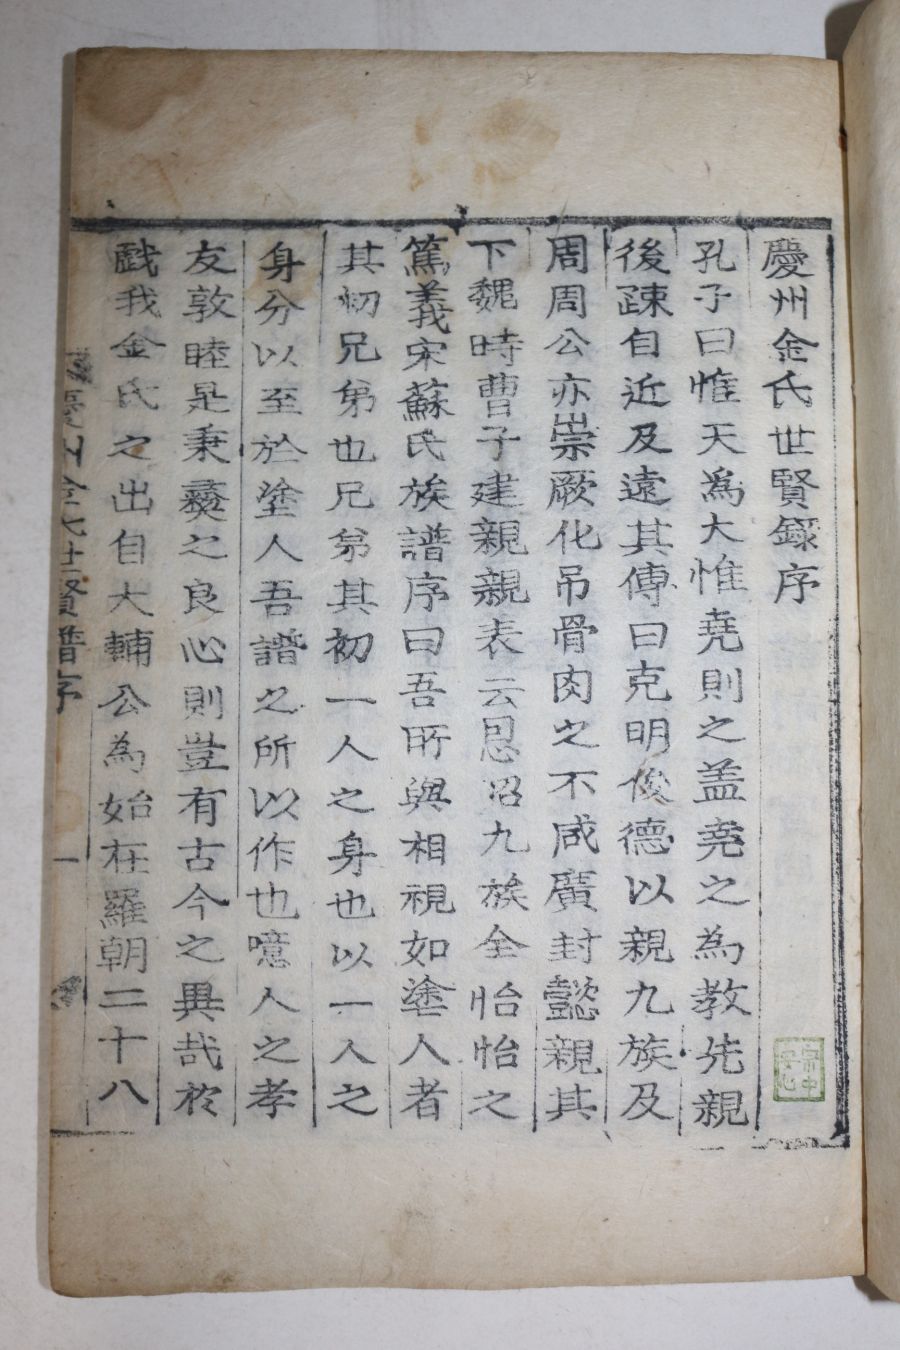 慶州金氏世賢錄序
孔子曰惟天爲大惟堯則之盖堯之為教先親
後疎自近及遠其傳曰克明俊德以親九族及
周周公亦崇厥化吊骨肉之不咸廣封懿親其
下魏時曹子建親親表云恩昭九族全怡怡之
篤義宋蘇氏族譜序曰吾所與相視如塗人者
其初兄弟也兄弟其初一人之身也以一人之
身分以至於塗人吾譜之所以作也噫人之孝
友敦睦是秉彝之良心則豈有古今之異哉於
戱我金氏之出自大輔公為始在羅朝二十八
慶州金氏世賢譜序
一